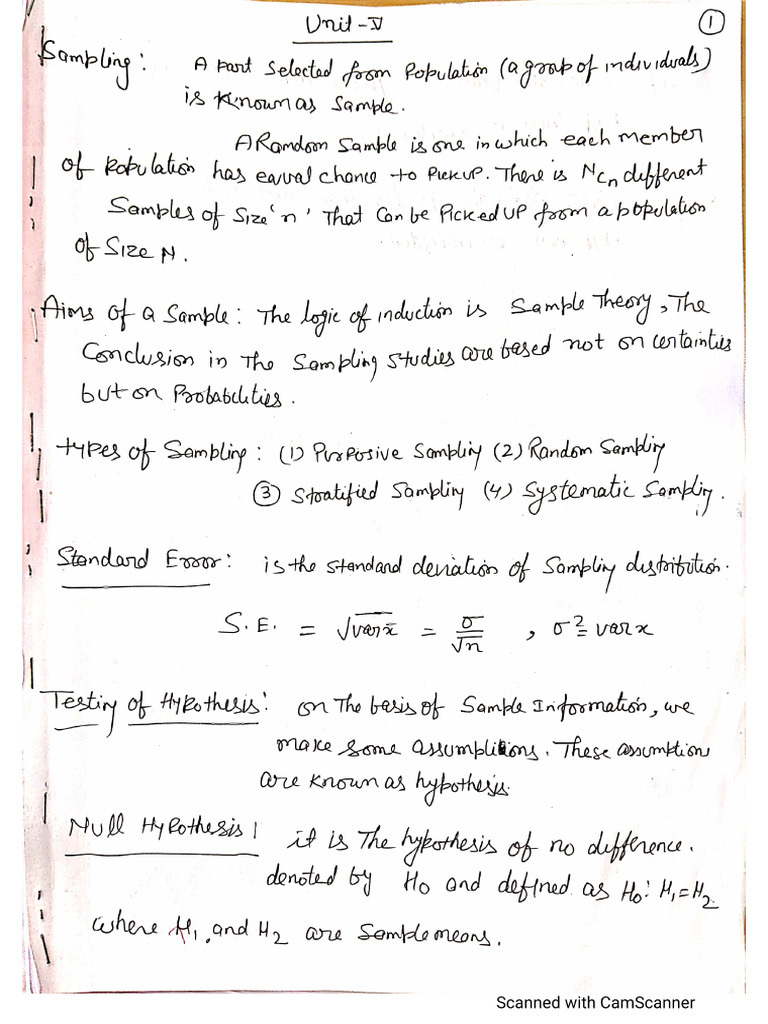 Unit-V
1
Sampling: A Part Selected from Population (a group of individuals)
is Known as Sample.
A Random Sample is one in which each member
of Population has equal chance to Pickup. There is NCn different
Samples of Size 'n' That Can be Picked up from a population
of Size N.
Aims of a Sample: The logic of induction is Sample Theory, The
Conclusion in The Sampling Studies are based not on certainties
but on Probabilities.
types of Sampling: (1) Purposive Sampling (2) Random Sampling
③ Stratified Sampling (4) Systematic Sampling.
Standard Error: is the standard deviation of Sampling distribution.
S.E. = √var x̄ = σ/√n , σ² = var x
Testing of Hypothesis: on The basis of Sample Information, we
make some assumptions. These assumption
are known as hypothesis.
Null Hypothesis: it is The hypothesis of no difference.
denoted by H0 and defined as H0: H1=H2.
where H1 and H2 are Sample means.
Scanned with CamScanner